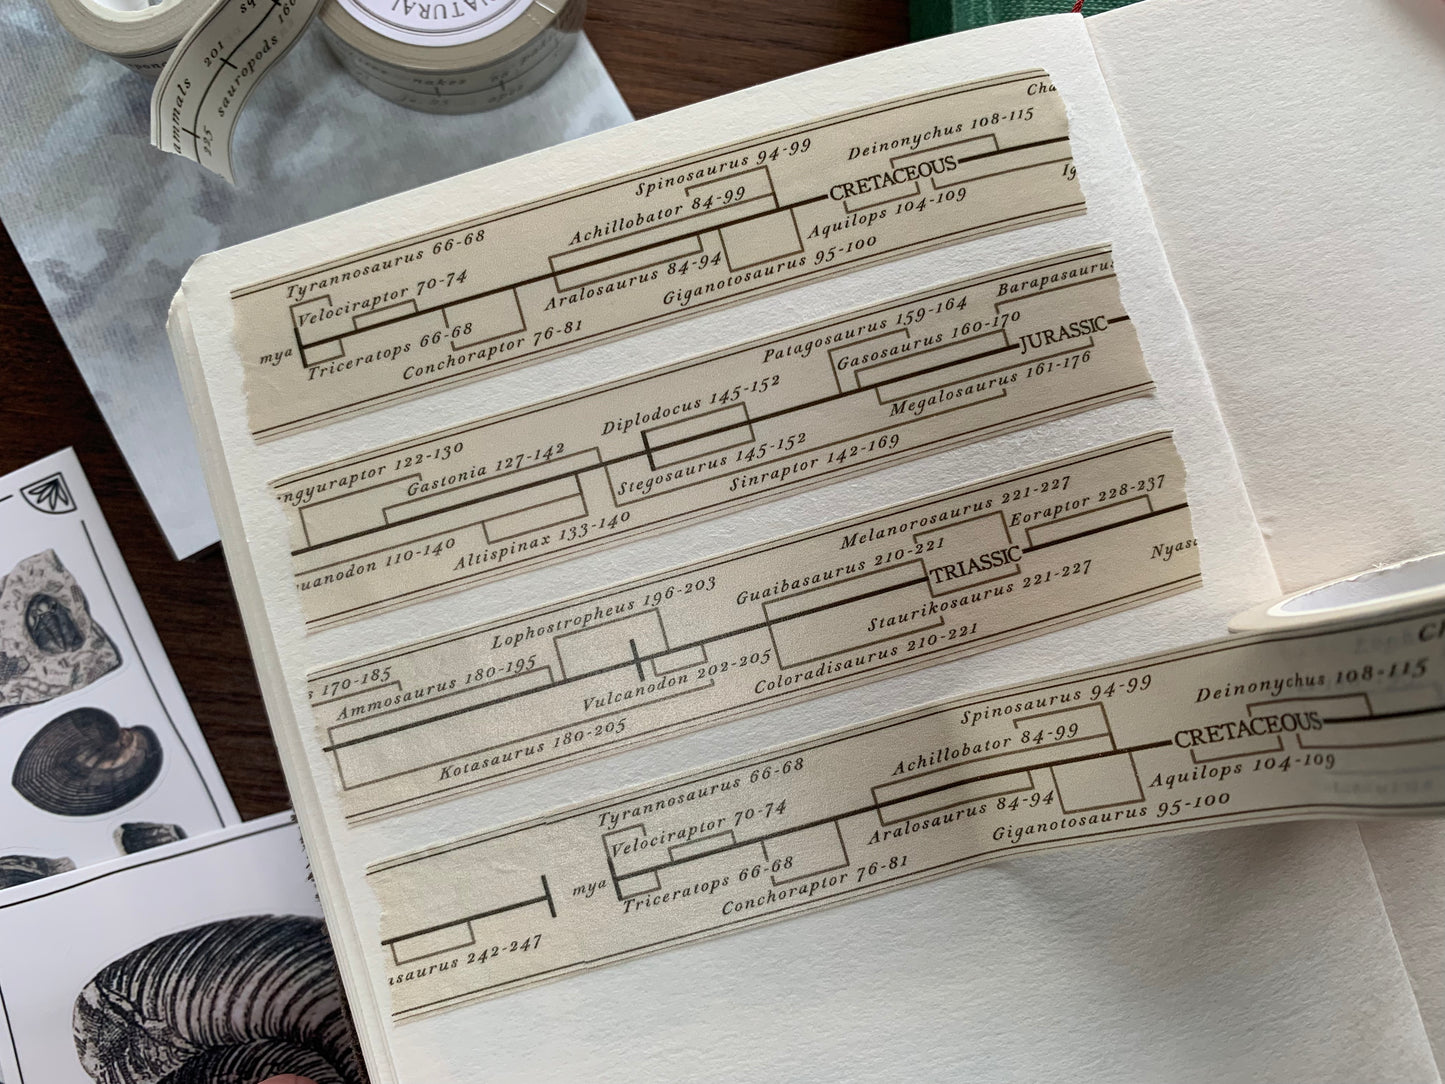 NATURAL
201
sauropods
225
Cha
Deinonychus 108-115
Spinosaurus 94-99
CRETACEOUS
Achillobator 84-99
Ig
Aquilops 104-109
Tyrannosaurus 66-68
Giganotosaurus 95-100
Aralosaurus 84-94
Velociraptor 70-74
mya
Triceratops 66-68
Conchoraptor 76-81
Barapasauru
Patagosaurus 159-164
Gasosaurus 160-170
JURASSIC
Megalosaurus 161-176
Diplodocus 145-152
Stegosaurus 145-152
Sinraptor 142-169
ngyuraptor 122-130
Gastonia 127-142
uanodon 110-140
Altispinax 133-140
Melanorosaurus 221-227
Eoraptor 228-237
Guaibasaurus 210-221
TRIASSIC
Nyasa
Staurikosaurus 221-227
Lophostropheus 196-203
Coloradisaurus 210-221
s 170-185
Ammosaurus 180-195
Vulcanodon 202-205
Kotasaurus 180-205
Ch
Deinonychus 108-115
Spinosaurus 94-99
CRETACEOUS
Achillobator 84-99
Aquilops 104-109
Tyrannosaurus 66-68
Giganotosaurus 95-100
Aralosaurus 84-94
Velociraptor 70-74
mya
Triceratops 66-68
Conchoraptor 76-81
isaurus 242-247